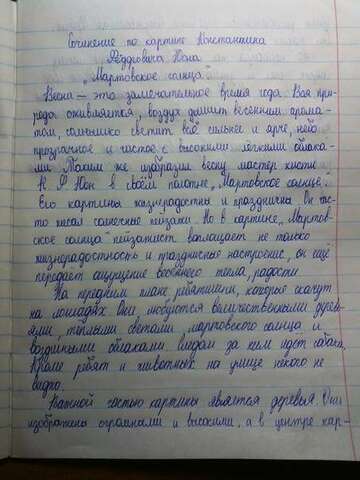 Сочинение по картине Константина
Фёдоровича Юона
„Мартовское солнце".
Весна – это замечательное время года. Вся при-
рода оживляется, воздух дышит весенним арома-
том, солнышко светит всё сильнее и ярче, небо
прозрачное и чистое с высокими лёгкими облака-
ми. Таким же изобразил весну мастер кисти
К. Ф. Юон в своём полотне „Мартовское солнце".
Его картины жизнерадостны и праздничны. Он час-
то писал солнечные пейзажи. Но в картине „Мартов-
ское солнце" пейзажист воплощает не только
жизнерадостность и праздничные настроение, он ещё
передаёт ощущение весеннего тепла, радости.
На переднем плане, ребятишки, которые скачут
на лошадях. Они любуются величественными дерев-
ями, тёплыми светами мартовского солнца и
воздушными облаками. Следом за ним идёт собака.
Кроме ребят и животных на улице никого не
видно.
Важной частью картины является деревья. Они
изображены огромными и высокими, а в центре кар-